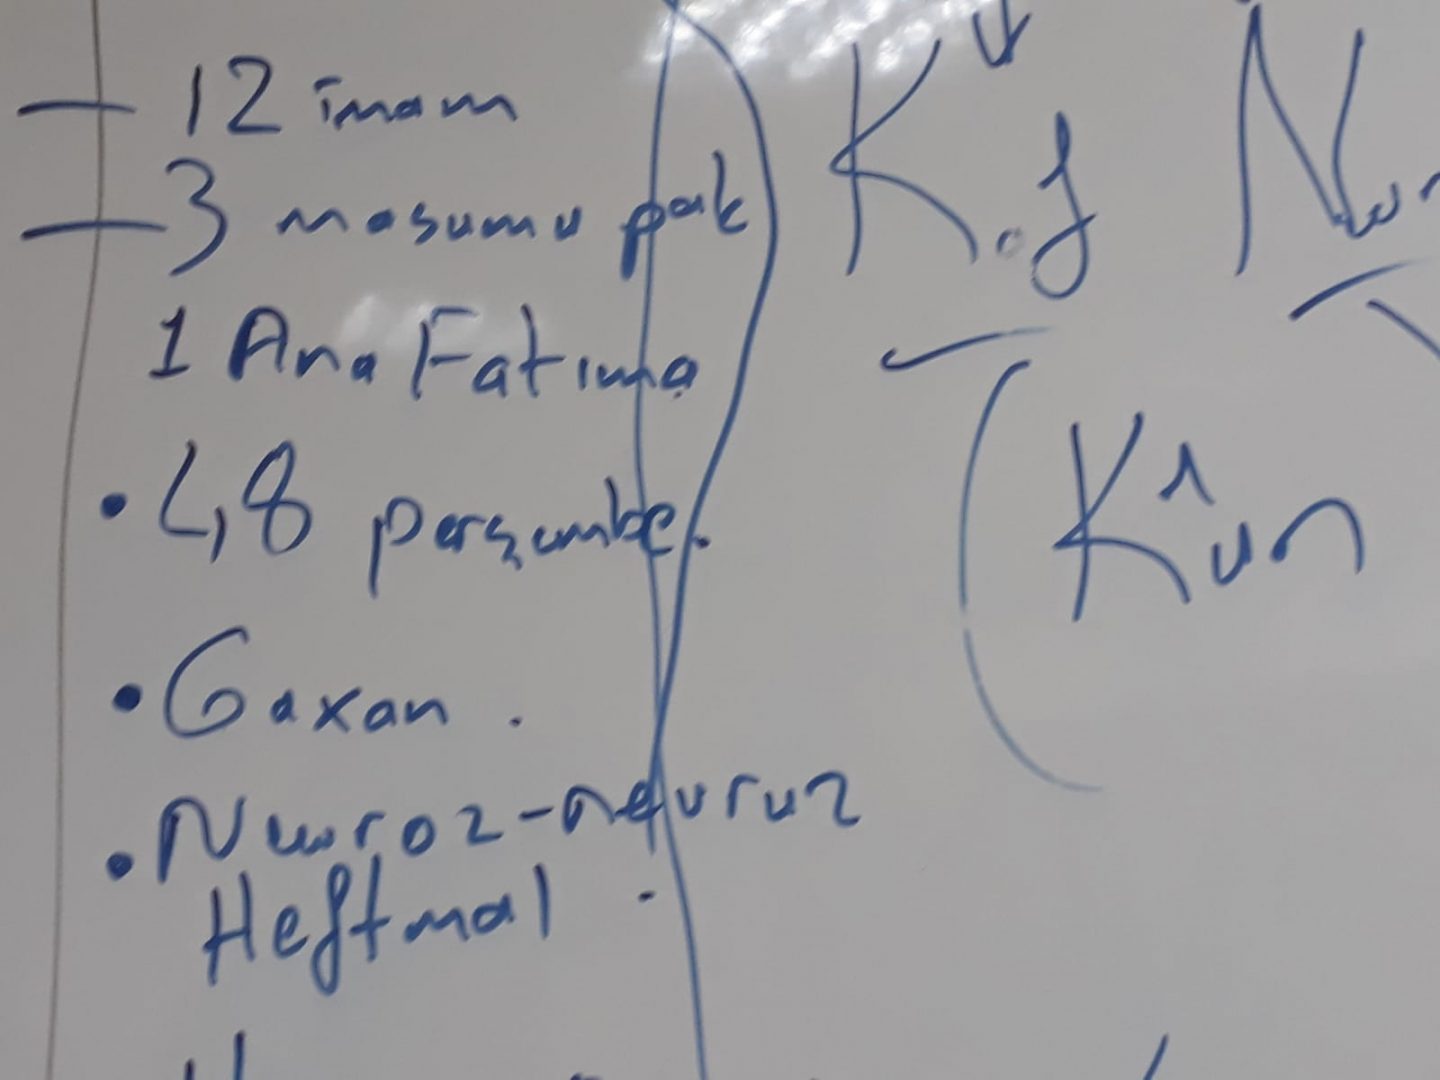 12 imam
3 masumu pak
1 Ana Fatıma
• 4,8 perşembe.
• Gaxan.
• Nwroz - nevruz
Heftmal.
K.f
Kun